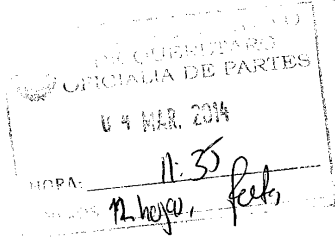 DE QUERETARO
OFICIALIA DE PARTES
0 4 MAR. 2014
HORA: 11:35
12 hojas,